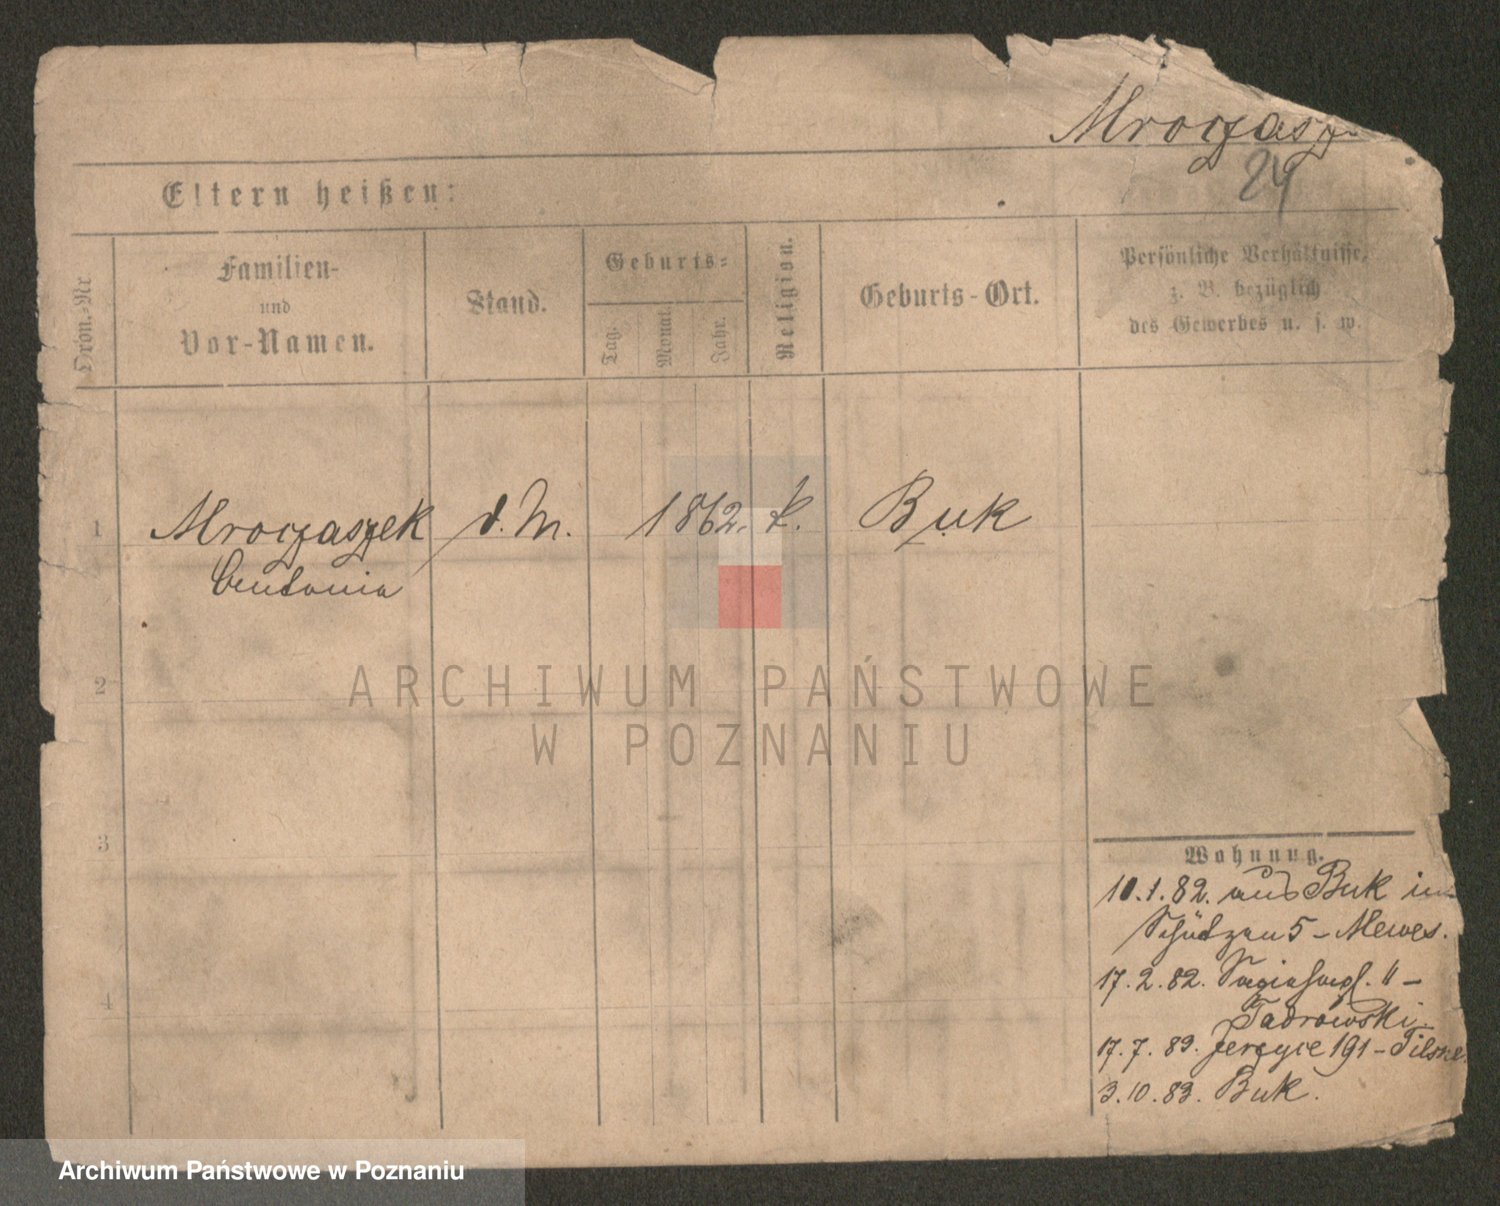 Mroczasz
24
Eltern heißen:
Chron.-Nr
Familien-
und
Vor-Namen.
Stand.
Geburts-
Tag.
Monat.
Jahr.
Religion.
Geburts-Ort.
Persönliche Verhältnisse,
z. B. bezüglich
des Gewerbes u. s. w.
1
Mroczaszek
Antonia
d. M.
1862.
k.
Buk
2
3
4
Wohnung.
10.1.82. aus Buk in
Schützen 5 - Mewes.
17.2.82.
Tadrowski
17.7.83. Jerzyce 191 -
3.10.83. Buk.
ARCHIWUM PAŃSTWOWE
W POZNANIU
Archiwum Państwowe w Poznaniu